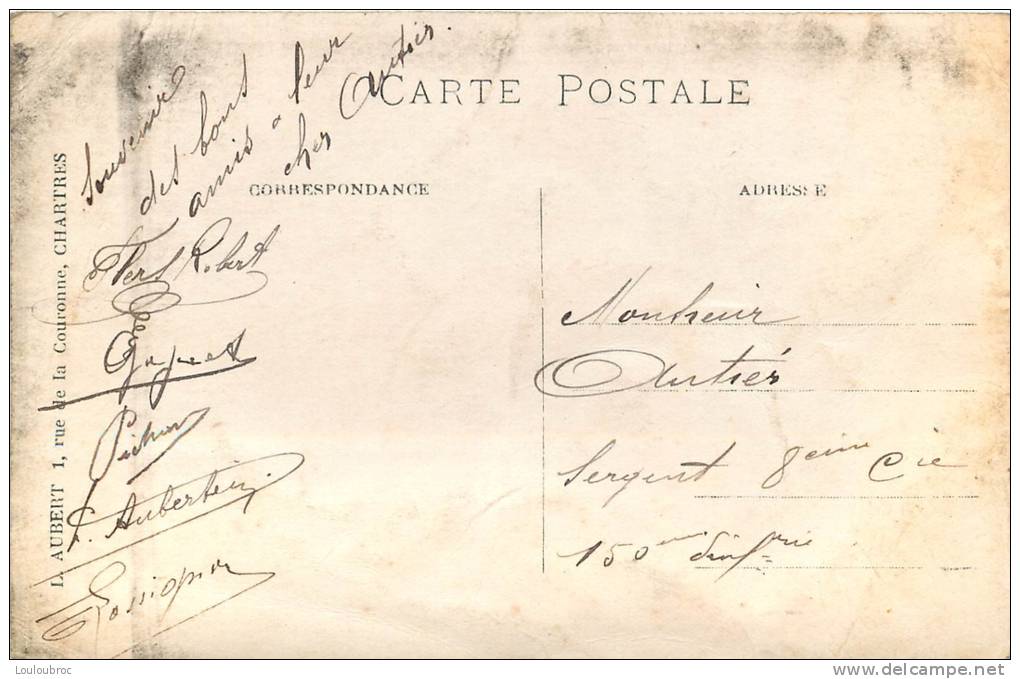 CARTE POSTALE
CORRESPONDANCE
ADRESSE
D. AUBERT 1, rue de la Couronne, CHARTRES
Souvenir
des bons
amis a leur
cher Autiés.
Robert
Pichon
F. Aubertein
Rossignon
Monsieur
Autiés
Sergent 8eme Cie
150eme d'infrie
Louloubroc
www.delcampe.net